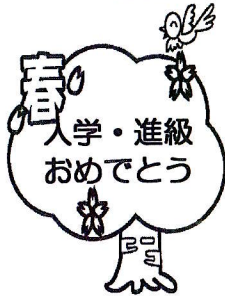 春
入学・進級
おめでとう